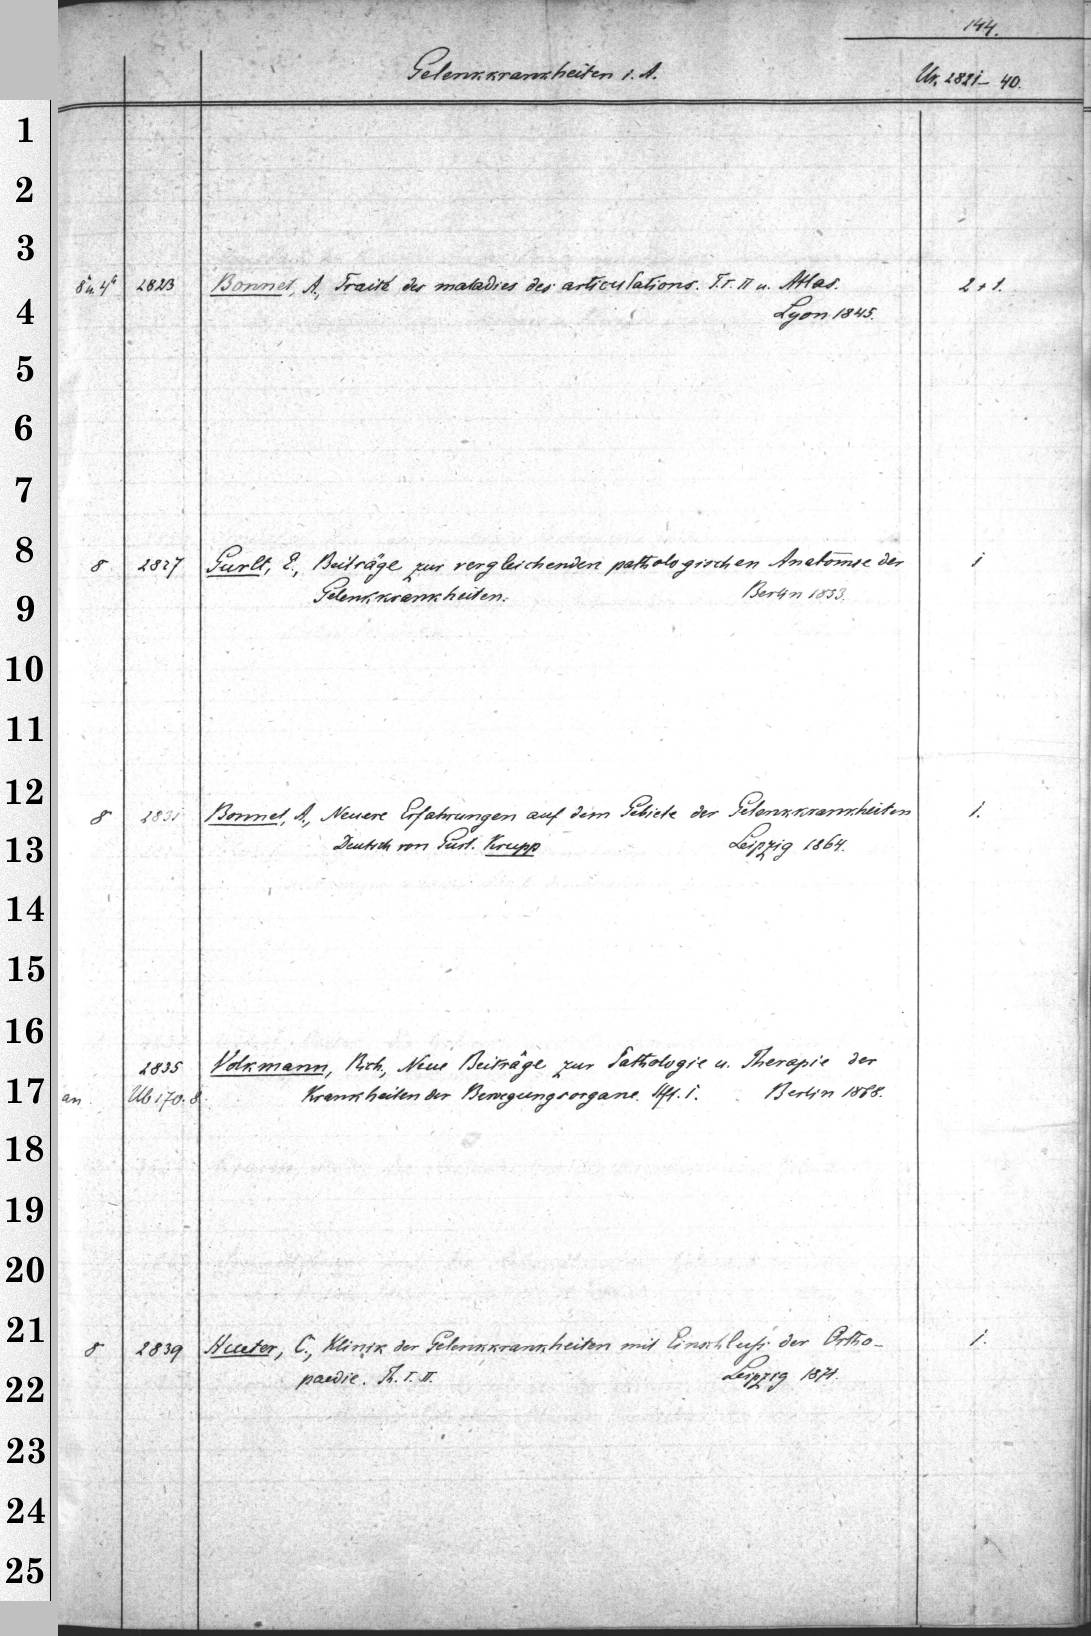 144.
Gelenkkrankheiten i. A. Uk, 2821–40.
1
2
3
8° u. 4° 2823 Bonnet, A., Traité des maladies des articulations. T. I. II u. Atlas. 2 + 1.
4 Lyon 1845.
5
6
7
8 8 2827 Gurlt, E., Beiträge zur vergleichenden pathologischen Anatomie der 1
9 Gelenkkrankheiten. Berlin 1853.
10
11
12 8 2831 Bonnet, A., Neuere Erfahrungen auf dem Gebiete der Gelenkkrankheiten 1.
13 Deutsch von Krupp Leipzig 1864.
14
15
16 2835 Volkmann, Rich., Neue Beiträge zur Pathologie u. Therapie der
17 an Ub 170. 8 Krankheiten der Bewegungsorgane. Hft. 1. Berlin 1868.
18
19
20
21 8 2839 Hueter, C., Klinik der Gelenkkrankheiten mit Einschluß der Ortho- 1.
22 paedie. Th. I. II. Leipzig 1871.
23
24
25